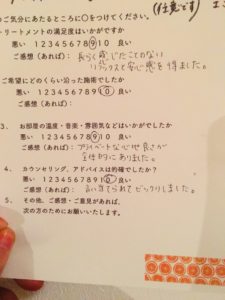 (任意です)
ご気分にあたるところに○をつけてください。
トリートメントの満足度はいかがですか
悪い 1 2 3 4 5 6 7 8 9 10 良い
ご感想(あれば): 長らく感じたことのない
リラックスと安心感を得ました。
ご希望にどのくらい沿った施術でしたか
悪い 1 2 3 4 5 6 7 8 9 10 良い
ご感想(あれば):
3. お部屋の温度・音楽・雰囲気などはいかがでしたか
悪い 1 2 3 4 5 6 7 8 9 10 良い
ご感想(あれば): プライベートな心地良さが
全体的にありました。
4. カウンセリング、アドバイスは的確でしたか?
悪い 1 2 3 4 5 6 7 8 9 10 良い
ご感想(あれば): 言い当てられてビックリしました。
5. その他、ご感想・ご意見があれば、
次の方のためにお願いいたします。